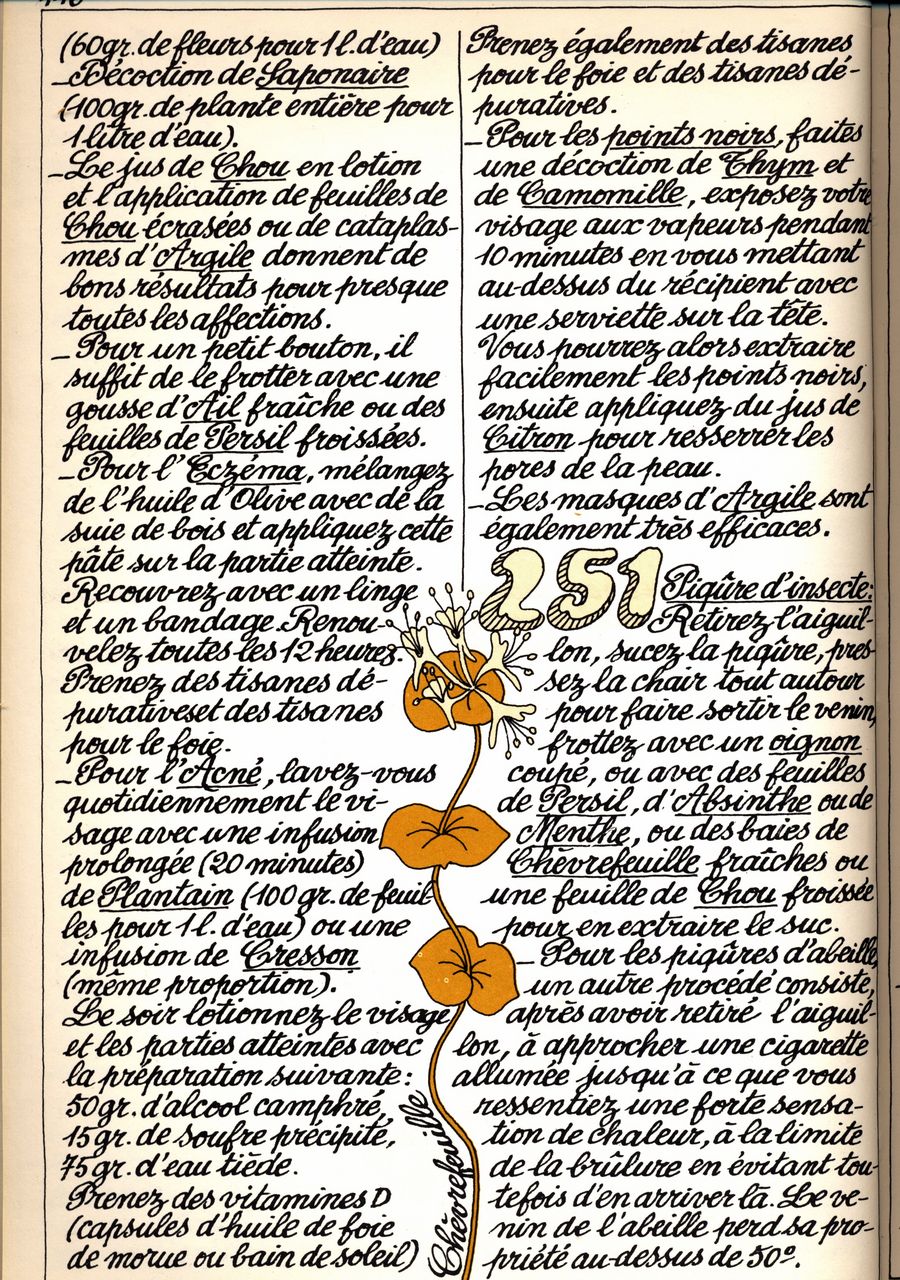 (60gr. de fleurs pour 1 l. d'eau)
_Décoction de Saponaire
(100gr. de plante entière pour
1 litre d'eau).
_Le jus de Chou en lotion
et l'application de feuilles de
Chou écrasées ou de cataplas-
mes d'Argile donnent de
bons résultats pour presque
toutes les affections.
_Pour un petit bouton, il
suffit de le frotter avec une
gousse d'Ail fraîche ou des
feuilles de Persil froissées.
_Pour l'Eczéma, mélangez
de l'huile d'Olive avec de la
suie de bois et appliquez cette
pâte sur la partie atteinte.
Recouvrez avec un linge
et un bandage. Renou-
velez toutes les 12 heures.
Prenez des tisanes dé-
purativeset des tisanes
pour le foie.
_Pour l'Acné, lavez-vous
quotidiennement le vi-
sage avec une infusion
prolongée (20 minutes)
de Plantain (100 gr. de feuil-
les pour 1 l. d'eau) ou une
infusion de Cresson
(même proportion).
Le soir lotionnez le visage
et les parties atteintes avec
la préparation suivante:
50gr. d'alcool camphré,
15gr. de soufre précipité,
75gr. d'eau tiède.
Prenez des vitamines D
(capsules d'huile de foie
de morue ou bain de soleil)
Prenez également des tisanes
pour le foie et des tisanes dé-
puratives.
_Pour les points noirs, faites
une décoction de Thym et
de Camomille, exposez votre
visage aux vapeurs pendant
10 minutes en vous mettant
au-dessus du récipient avec
une serviette sur la tête.
Vous pourrez alors extraire
facilement les points noirs,
ensuite appliquez du jus de
Citron pour resserrer les
pores de la peau.
_Les masques d'Argile sont
également très efficaces.
251 Piqûre d'insecte:
Retirez l'aiguil-
lon, sucez la piqûre, pres-
sez la chair tout autour
pour faire sortir le venin,
frottez avec un oignon
coupé, ou avec des feuilles
de Persil, d'Absinthe ou de
Menthe, ou des baies de
Chèvrefeuille fraîches ou
une feuille de Chou froissée
pour en extraire le suc.
_Pour les piqûres d'abeille,
un autre procédé consiste,
après avoir retiré l'aiguil-
lon, à approcher une cigarette
allumée jusqu'à ce que vous
ressentiez une forte sensa-
tion de chaleur, à la limite
de la brûlure en évitant tou-
tefois d'en arriver là. Le ve-
nin de l'abeille perd sa pro-
priété au-dessus de 50º.
Chèvrefeuille